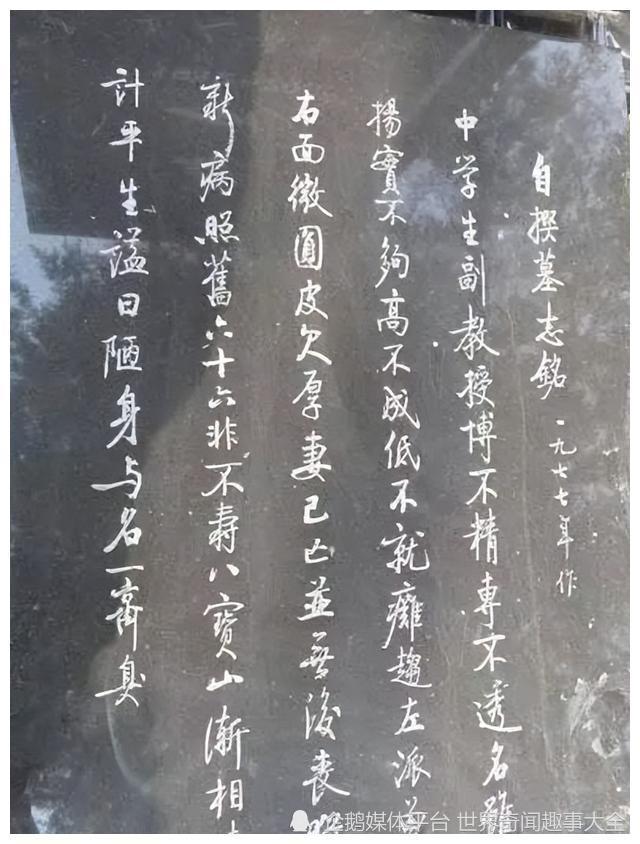 自撰墓志銘 一九七七年作
中学生副教授博不精專不透名雖
揚實不夠高不成低不就癱趨左派
右面微圓皮欠厚妻已亡並無後喪
新病照舊六十六非不壽八寶山漸相
計平生謚曰陋身与名一齊臭
企鹅媒体平台 世界奇闻趣事大全